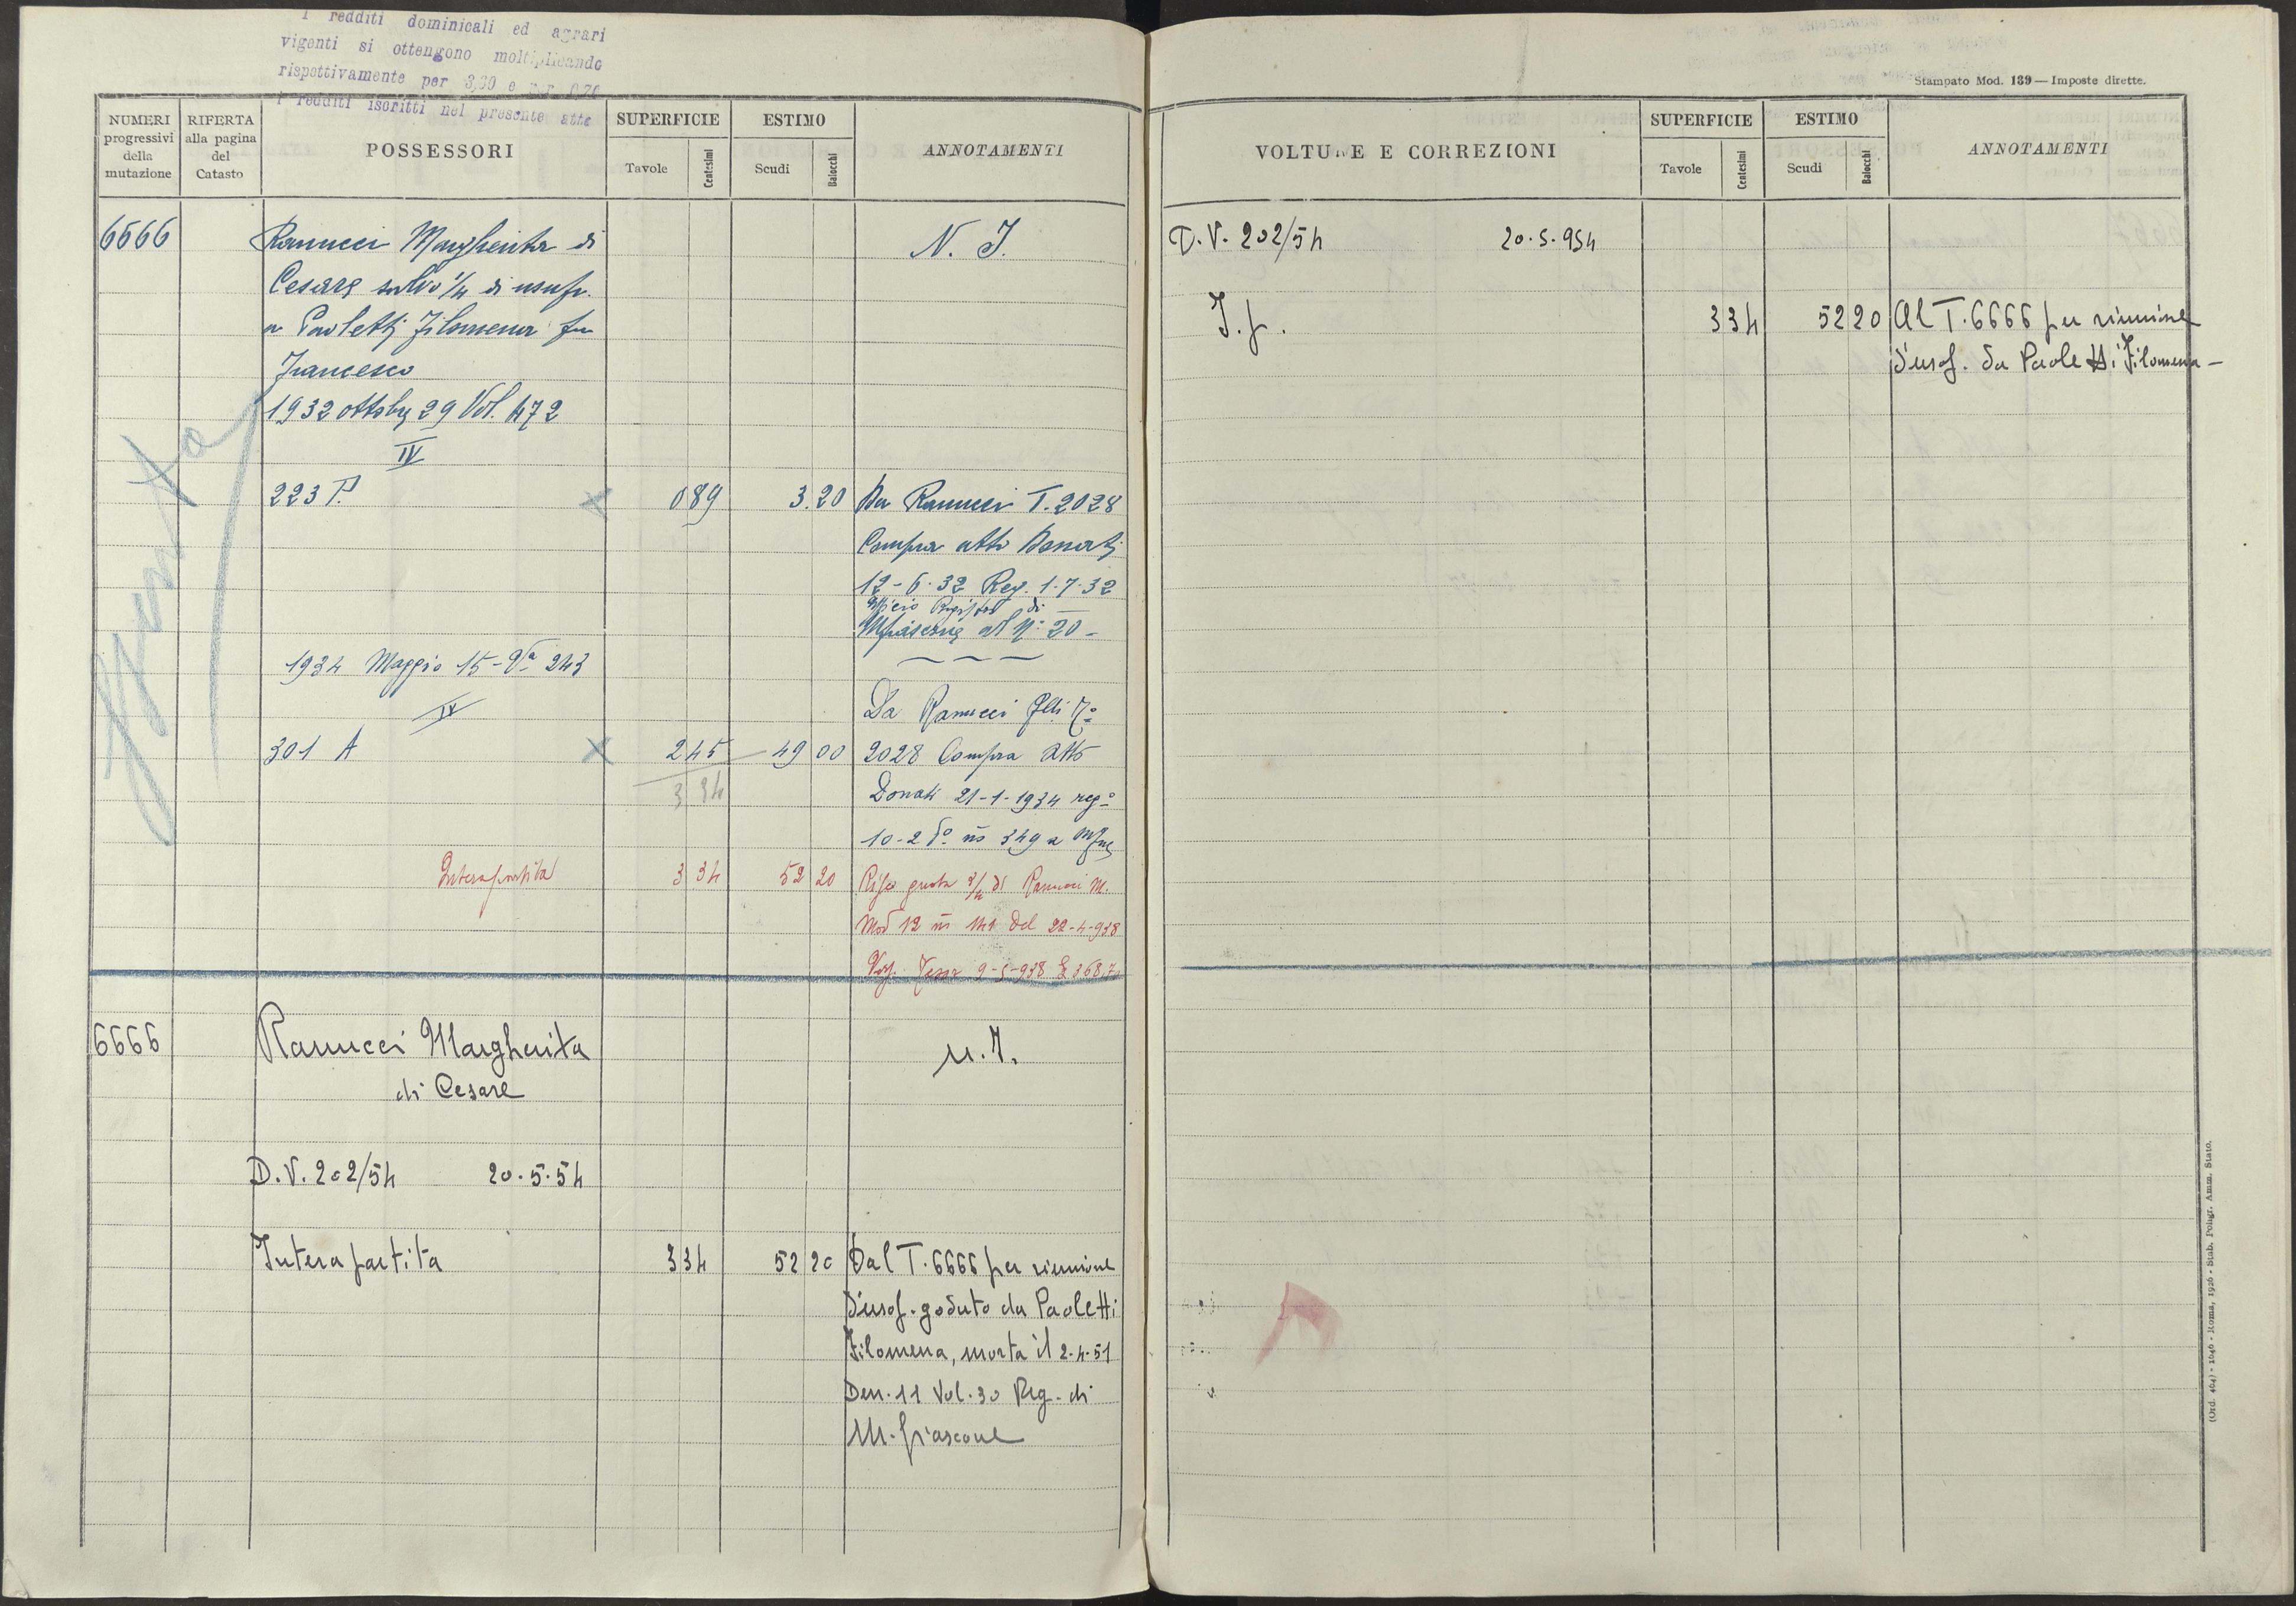 I redditi dominicali ed agrari
vigenti si ottengono moltiplicando
rispettivamente per 3,60 e per 0,70
i redditi iscritti nel presente atto
NUMERI progressivi della mutazione
RIFERTA alla pagina del Catasto
POSSESSORI
SUPERFICIE
Tavole Centesimi
ESTIMO
Scudi Baiocchi
ANNOTAMENTI
6666 Ranucci Margherita di N. I.
Cesare salvo 1/4 di usufr.
a Paoletti Filomena fu
Francesco
1932 ottobre 29 Vol. 472
IV
223 P. X 0 89 3.20 Da Ranucci T. 2028
Compra atto Donati
12-6-32 Reg. 1-7-32
Ufficio Registro di
Mfiascone al N: 20 -
1934 Maggio 15 - Va 243
IV
Da Ranucci
301 A X 2 45 49 00 2028 Compra atto
3 34 Donati 21-1-1934 rego
10-2 do n 349 a Mfne
Intera partita 3 34 52 20 quota di Ranucci M.
Mod 12 n 141 del 22-4-938
9-5-938 3687
Aggiunta
6666 Ranucci Margherita N. I.
di Cesare
D.V. 202/54 20.5.54
Intera partita 3 34 52 20 Dal T. 6666 per riunione
d'usof. goduto da Paoletti
Filomena, morta il 2-4-51
Den. 11 Vol. 30 Reg. di
M. fiascone
Stampato Mod. 139 — Imposte dirette.
VOLTURE E CORREZIONI
SUPERFICIE
Tavole Centesimi
ESTIMO
Scudi Baiocchi
ANNOTAMENTI
D.V. 202/54 20.5.954
I.p. 3 34 52 20 Al T. 6666 per riunione
d'usof. da Paoletti Filomena -
(Ord. 404) - 1046 - Roma, 1926 - Stab. Poligr. Amm. Stato.